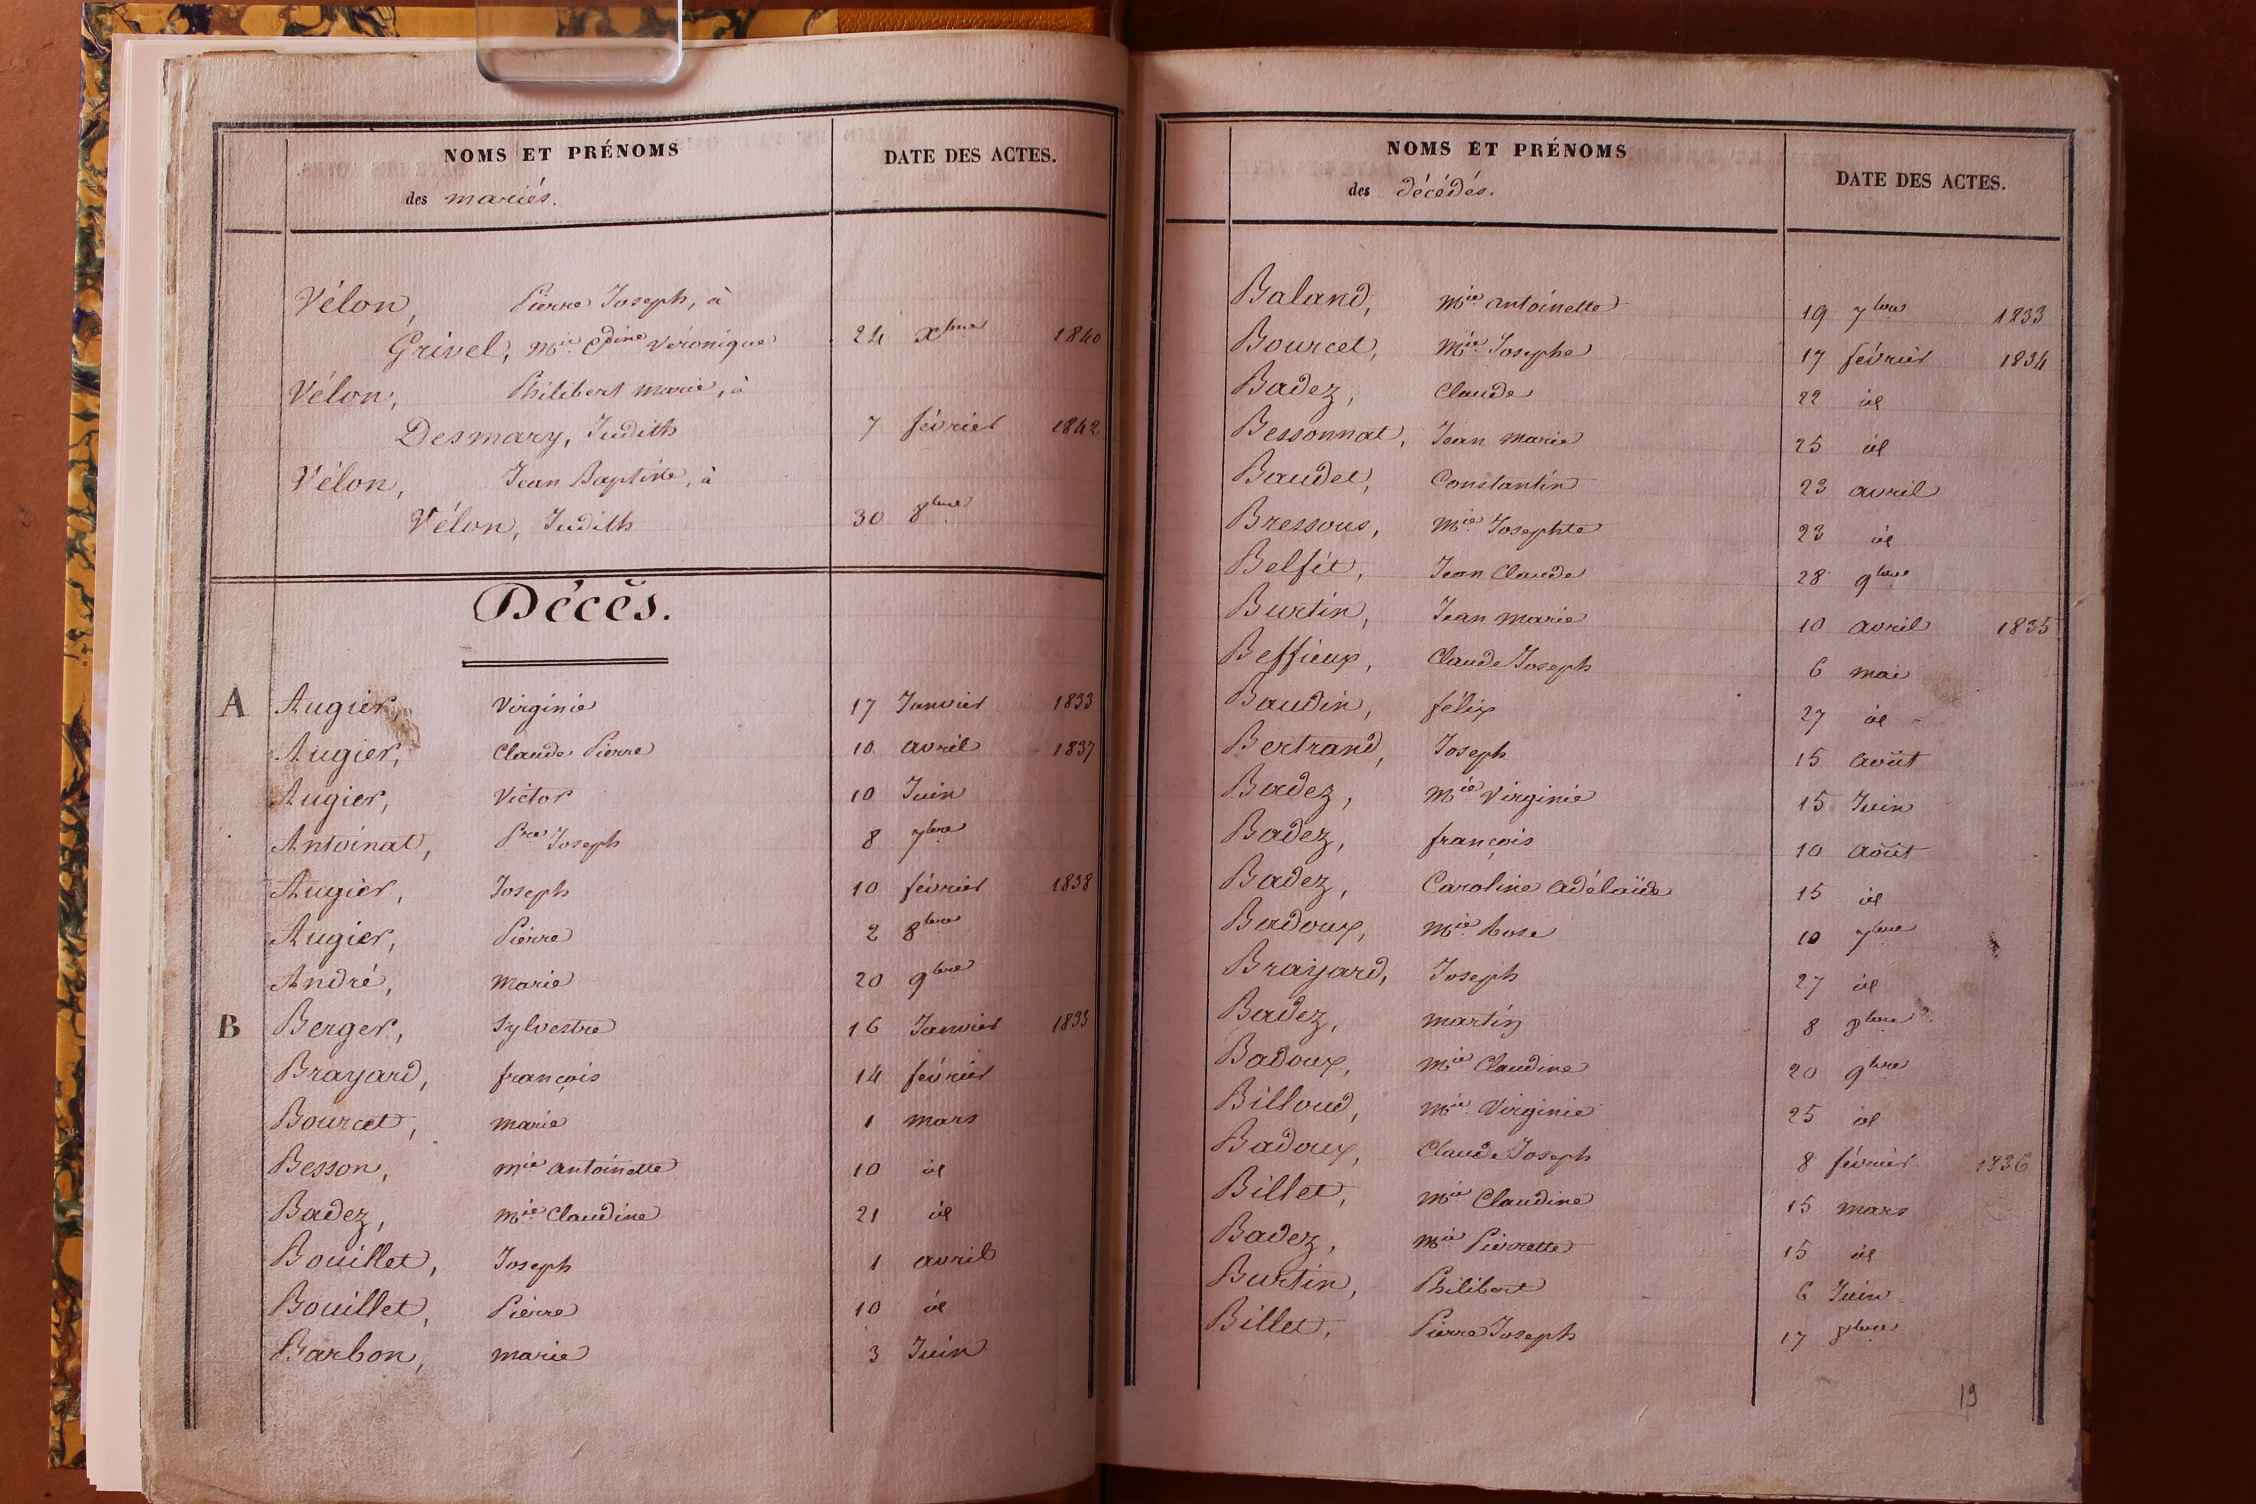 NOMS ET PRÉNOMS
des mariés.
DATE DES ACTES.
Vélon, Pierre Joseph, à
Grivel, Mie Cdine Véronique 24 Xbre 1840
Vélon, Philibert Marie, à
Desmary, Judith 7 février 1842
Vélon, Jean Baptiste, à
Vélon, Judith 30 8bre
Décès.
A Augier, Virginie 17 Janvier 1833
Augier, Claude Pierre 10 avril 1837
Augier, Victor 10 Juin
Antoinat, Pre Joseph 8 7bre
Augier, Joseph 10 février 1838
Augier, Pierre 2 8bre
André, Marie 20 9bre
B Berger, Sylvestre 16 Janvier 1833
Brayard, françois 14 février
Bourcet, Marie 1 mars
Besson, Mie antoinette 10 id
Badez, Mie Claudine 21 id
Bouillet, Joseph 1 avril
Bouillet, Pierre 10 id
Barbon, Marie 3 Juin
NOMS ET PRÉNOMS
des décédés.
DATE DES ACTES.
Baland, Mie antoinette 19 7bre 1833
Bourcet, Mie Josephe 17 février 1834
Badez, Claude 22 id
Bessonnat, Jean Marie 25 id
Baudet, Constantin 23 avril
Bressous, Mie Josephte 23 id
Belfit, Jean Claude 28 9bre
Burtin, Jean Marie 10 avril 1835
Beffieux, Claude Joseph 6 mai
Baudin, félix 27 id
Bertrand, Joseph 15 août
Badez, Mie Virginie 15 Juin
Badez, françois 10 août
Badez, Caroline adélaïde 15 id
Badoux, Mie Rose 10 7bre
Brayard, Joseph 27 id
Badez, Martin 8 8bre
Badoux, Mie Claudine 20 9bre
Billoud, Mie Virginie 25 id
Badoux, Claude Joseph 8 février 1836
Billet, Mie Claudine 15 mars
Badez, Mie Pierrette 15 id
Burtin, Philibert 6 Juin
Billet, Pierre Joseph 17 8bre
19